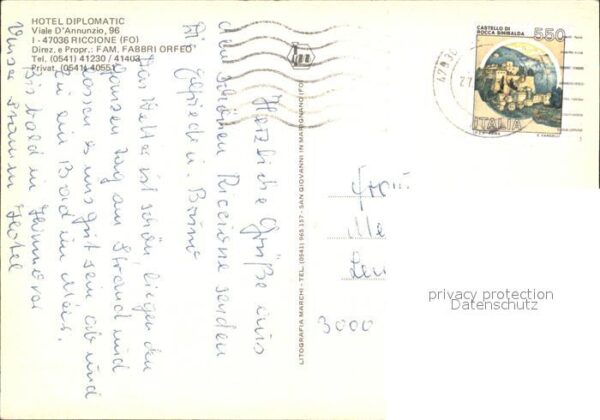 HOTEL DIPLOMATIC
Viale D'Annunzio, 96
I - 47036 RICCIONE (FO)
Direz. e Propr.: FAM. FABBRI ORFEO
Tel. (0541) 41230 / 41403
Privat. (0541) 40551
Herzliche Grüße aus
dem schönen Riccione senden
Bruno
Das Wetter ist schön liegen den
ganzen Tag am Strand und
lassen es uns gut sein ab und
zu ein Bad im Meer.
Bis bald in
unser Hotel
LITOGRAFIA MARCHI - TEL. (0541) 965.157 - SAN GIOVANNI IN MARIGNANO (FO)
CASTELLO DI
ROCCA SINIBALDA
550
ITALIA
47036
3000
privacy protection
Datenschutz